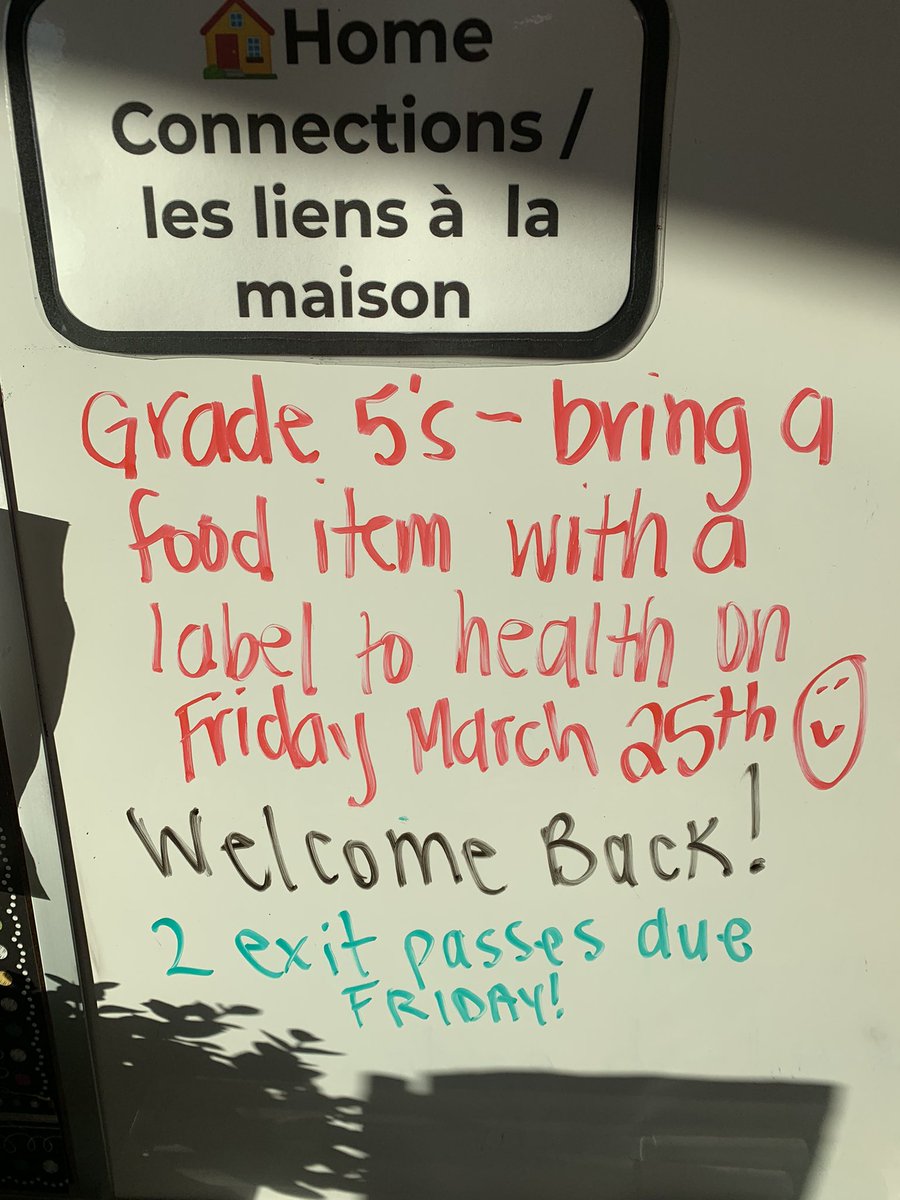 Home
Connections /
les liens à la
maison
Grade 5's - bring a
food item with a
label to health on
Friday March 25th
Welcome Back!
2 exit passes due
FRIDAY!